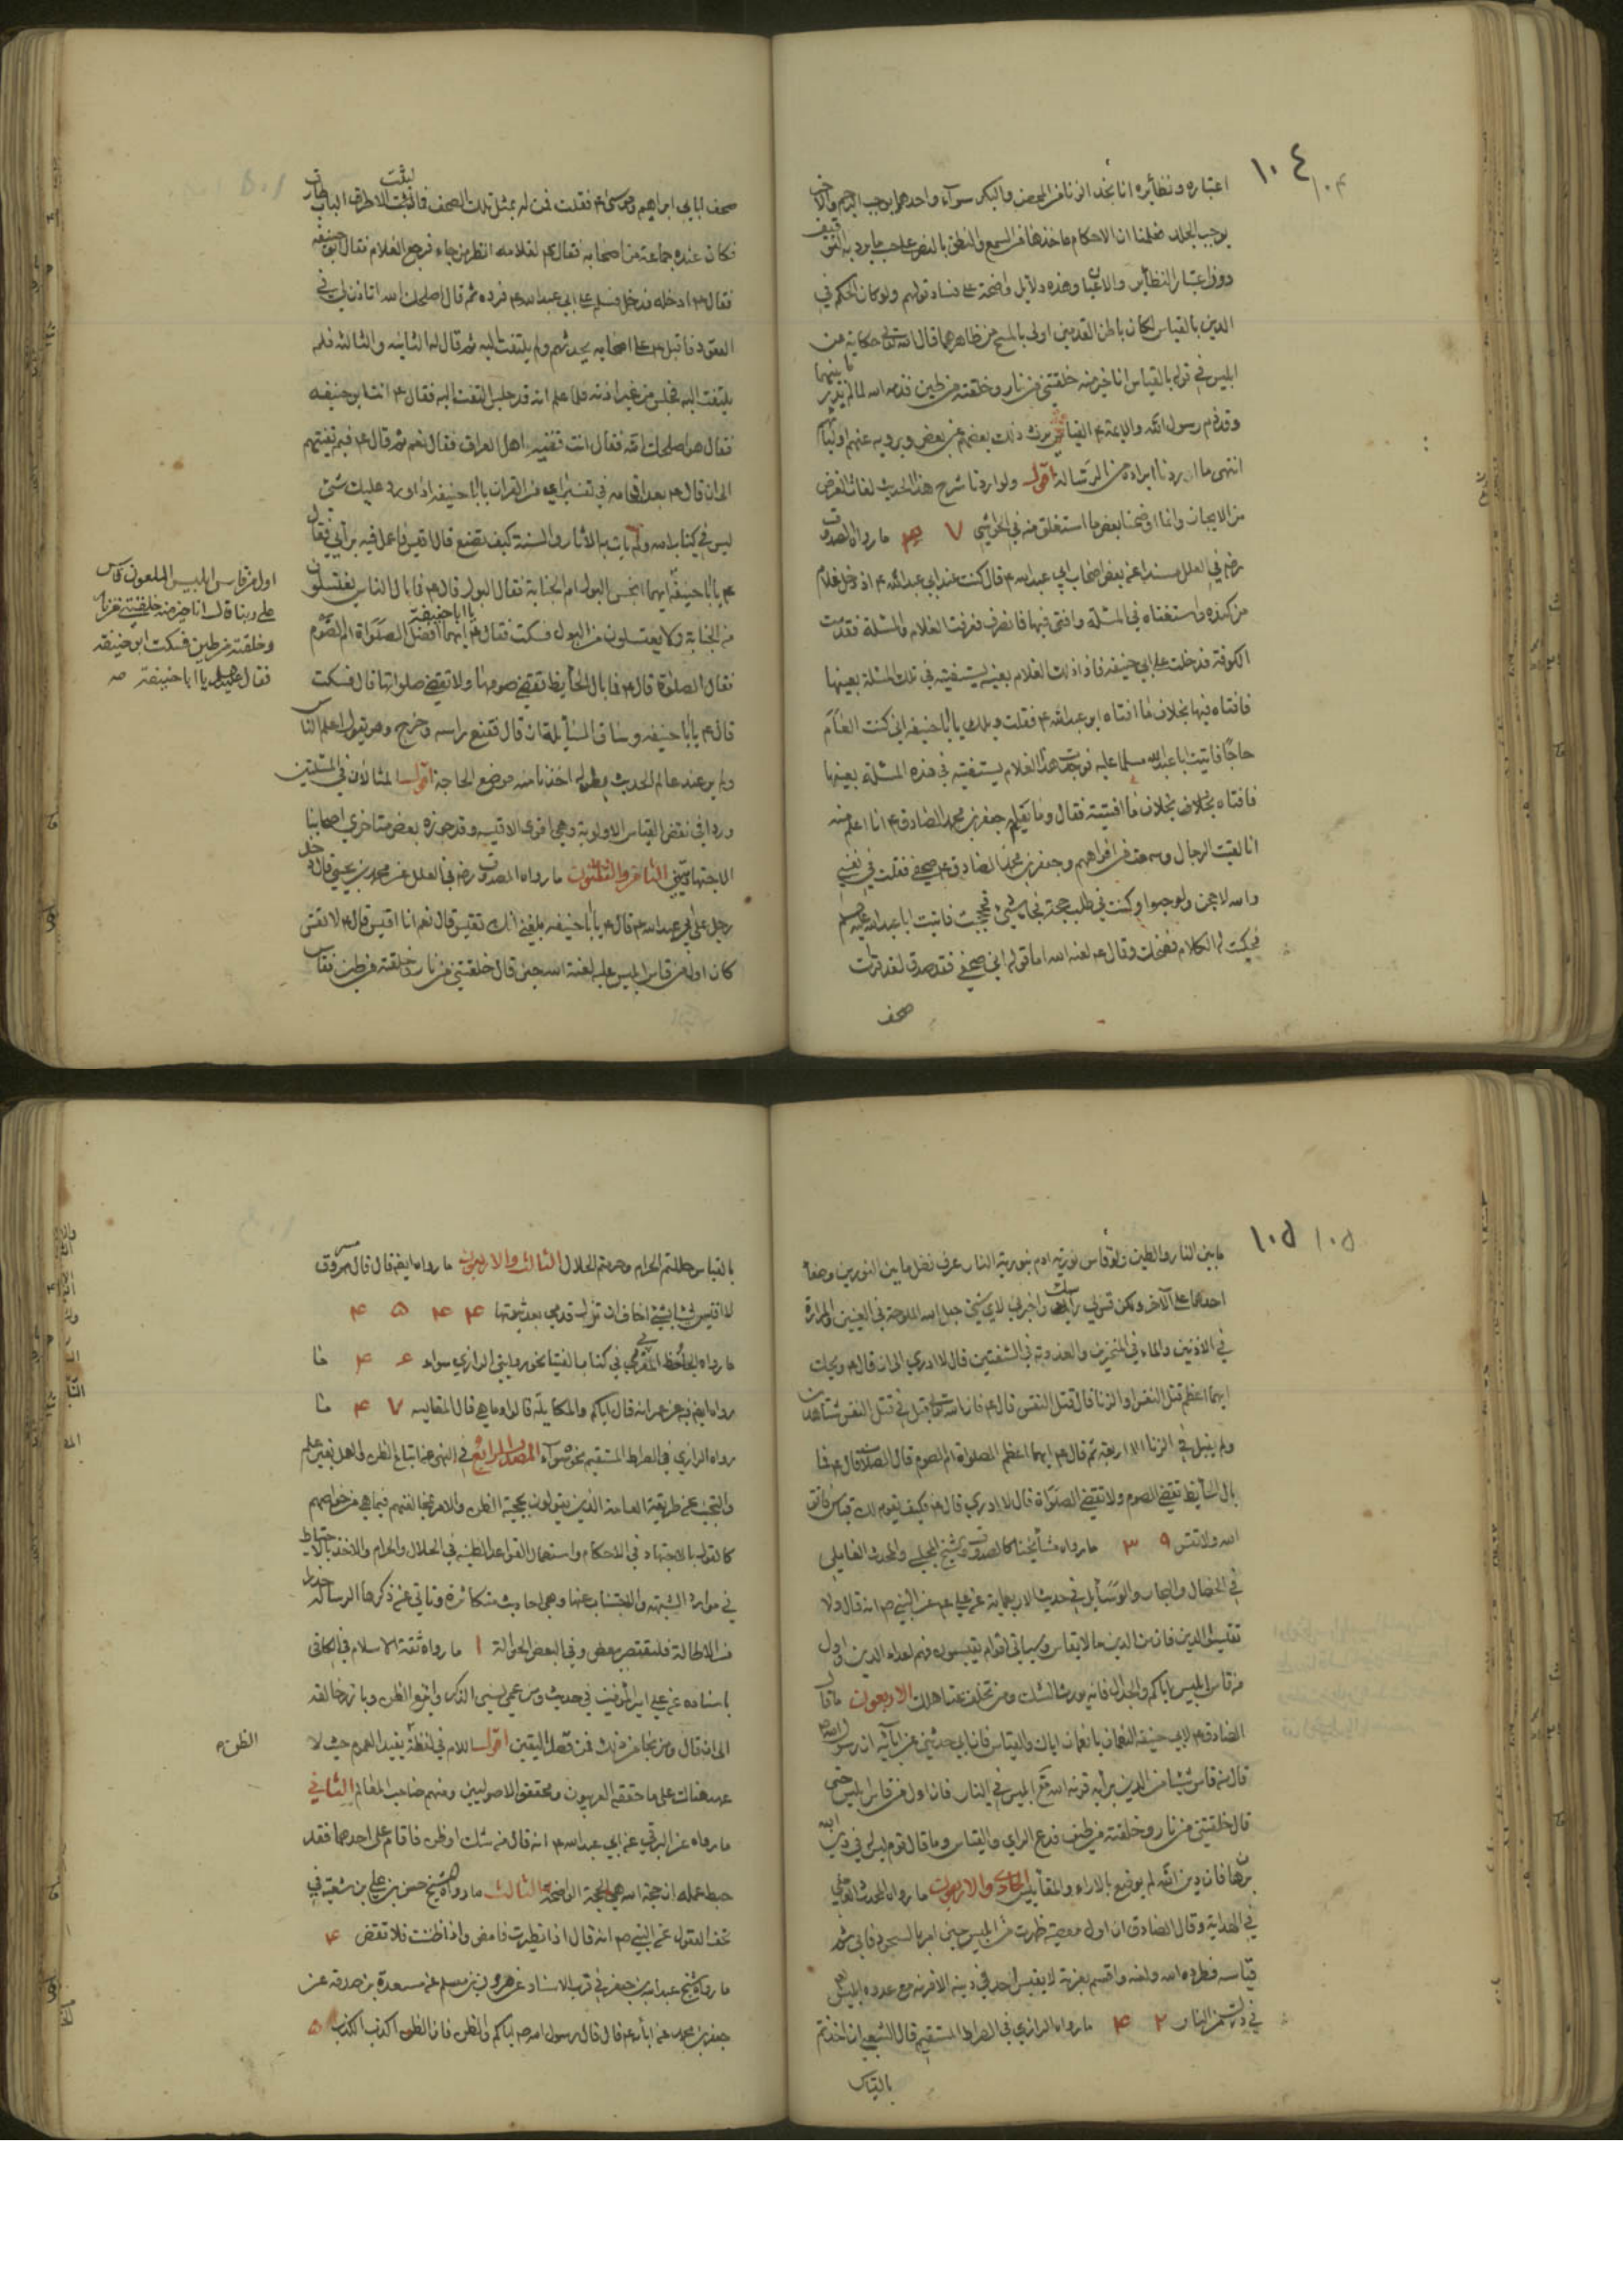 ١٠٤ ١٠٤
اعتباره ونظائره انا نجد الزنا من المحصن والبكر سواء واحدهما يوجب الرجم والاخر
يوجب الجلد فعلمنا ان الاحكام ماخذها من السمع والنطق بالنص على حسب ما يرد به التوقيف
دون اعتبار النظاير والاعيان وهذه دلايل واضحة على فساد قولهم ولو كان الحكم في
الدين بالقياس لكان باطن القدمين اولى بالمسح من ظاهرهما قال الله تعالى حكاية عن
ابليس في قوله بالقياس انا خير منه خلقتني من نار وخلقته من طين فذمه الله لما لم يدر ما بينهما
وقد ذم رسول الله والايمة ع القياس يرث ذلك بعضهم عن بعض ويرويه عنهم اولياؤهم
انتهى ما اردنا ايراده من الرسالة اقول ولو اردنا شرح هذا الحديث لفات الغرض
من الايجاز وانما اوضحنا بعض ما استغلق منه في الحواشي ٣٧ ما رواه الصدوق
رض في العلل مسندا عن بعض اصحاب ابي عبد الله ع قال كنت عند ابي عبد الله ع اذ دخل غلام
من كندة فاستفتاه في المسئلة وافتى فيها فانصرف فعرفت الغلام والمسئلة فقدمت
الكوفة فدخلت على ابي حنيفه فاذا ذلك الغلام بعينه يستفتيه في تلك المسئلة بعينها
فافتاه فيها بخلاف ما افتاه ابو عبد الله ع فقلت ويلك يا ابا حنيفه اني كنت العام
حاجا فاتيت ابا عبد الله مسلما عليه فوجدت هذا الغلام يستفتيه في هذه المسئلة بعينها
فافتاه بخلاف بخلاف ما افتيته فقال وما يعلم جعفر بن محمد الصادق ع انا اعلم منه
انا لقيت الرجال وسمعت من افواههم وجعفر بن محمد الصادق ع صحفي فقلت في نفسي
والله لاحجن ولو حبوا وكنت في طلب حجة فجاءتني فحججت فاتيت ابا عبد الله عليه السلم
فحكيت له الكلام فضحك وقال ع لعنه الله اما قوله اني صحفي فقد صدق لقد قرات
صحف
صحف ابائي ابراهيم وموسى ع فقلت فمن له بمثل تلك الصحف قال فما لبثت الا ان طرق الباب طارق
فكان عنده جماعة من اصحابه فقال ع لغلامه انظر من جاء فرجع الغلام فقال ابو حنيفه
فقال ع ادخله فدخل فسلم على ابي عبد الله ع فرده ثم قال اصلحك الله اتاذن لي في
القعود فاقبل ع على اصحابه يحدثهم ولم يلتفت اليه ثم قال له الثانية والثالثة فلم
يلتفت اليه فجلس من غير اذنه فلما علم انه قد جلس التفت اليه فقال ع انت ابو حنيفه
فقال هو اصلحك الله فقال انت فقيه اهل العراق فقال نعم ثم قال ع فبم تفتيهم
الى ان قال ع بعد افحامه في تفسير اي من القران يا ابا حنيفه اذا ورد عليك شئ
ليس في كتاب الله ولم يات به الاثار والسنة كيف تصنع قال اقيس فاعمل فيه برايي فقال
ع يا ابا حنيفه ايهما انجس البول ام الجنابة فقال البول قال ع فما بال الناس يغتسلون
من الجنابة ولا يغتسلون من البول فسكت فقال ع يا ابا حنيفه ايهما افضل الصلواة ام الصوم
فقال الصلوة قال ع فما بال الحايض تقضي صومها ولا تقضي صلواتها قال فسكت
قال ع يا ابا حنيفه وساق المسايل قال فقنع راسه وخرج وهو يقول اعلم الناس
ولم ير عند عالم الحديث بطوله اخذنا منه موضع الحاجة اقول المثالان في المسئلتين
وردا في نقض القياس الاولوية وهي اقوى الاقيسة وقد جوزه بعض متاخري اصحابنا
الاجتهاديين الثامن والثلثون ما رواه الصدوق رض في العلل عن محمد بن يحيى قال دخل
رجل على ابي عبد الله ع قال ع يا ابا حنيفه بلغني انك تقيس قال نعم انا اقيس قال ع لا تقس
كان اول من قاس ابليس عليه لعنة الله حين قال خلقتني من نار وخلقته من طين فقاس
اول من قاس ابليس الملعون قاس
على ربنا وقال انا خير منه خلقتني من نار
وخلقته من طين فسكت ابو حنيفه
فقال عليه السلم يا ابا حنيفة صح
١٠٥ ١٠٥
ما بين النار والطين ولو قاس نورية ادم بنورية النار عرف فضل ما بين النورين وصفا
احدهما على الاخر ولكن قس لي راسك واخبرني لاي شئ جعل الله الملوحة في العينين والمرارة
في الاذنين والماء في المنخرين والعذوبة في الشفتين قال لا ادري الى ان قال ع ويحك
ايهما اعظم قتل النفس او الزنا قال قتل النفس قال ع فان الله تعالى قبل في قتل النفس شاهدين
ولم يقبل في الزنا الا اربعة ثم قال ع ايهما اعظم الصلواة ام الصوم قال الصلوة قال ع فما
بال الحايض تقضي الصوم ولا تقضي الصلواة قال لا ادري قال ع فكيف يقوم لك قياس فاتق
الله ولا تقس ٣٩ ما رواه مشايخنا كالصدوق وشيخ المجلسي والمحدث العاملي
في الخصال والبحار والوسايل في حديث الاربعماية عن علي ع عن النبي ص انه قال ولا
تقيسوا الدين فان من الدين ما لا يقاس وسياتي اقوام يقيسون فهم اعداء الدين واول
من قاس ابليس اياكم والجدال فانه يورث الشك ومن تخلف عنا هلك الاربعون ما قال
الصادق ع لابي حنيفه النعمان يا نعمان اياك والقياس فان ابي حدثني عن ابائه ان رسول الله ص
قال من قاس شيئا من الدين برايه قرنه الله مع ابليس في النار فان اول من قاس ابليس حتى
قال خلقتني من نار وخلقته من طين فدع الراي والقياس وما قال قوم ليس له في دين الله
برهان فان دين الله لم يوضع بالاراء والمقاييس الحادي والاربعون ما رواه المحدث العاملي
في الهداية وقال الصادق ان اول معصية ظهرت من ابليس حين امر بالسجود فابى ثم
قياسه فطرده الله ولعنه واقسم بعزته لا يقيس احد في دينه الا قرنه مع عدوه ابليس
في درك من النار ٤٢ ما رواه الرازي في الصراط المستقيم قال الشعبي ان اخذتم
بالقياس
بالقياس حللتم الحرام وحرمتم الحلال الثالث والاربعون ما رواه ايضا قال قال مسروق
لا اقيس شيئا بشئ اخاف ان تزل قدمي بعد ثبوتها ٤٤ ٤٥
ما رواه الحافظ في كتابه الفتيا نحو روايتي الرازي سواء ٤٦ ما
رواه ايضا عن عمر انه قال اياكم والمكايلة قالوا وما هي قال المقايسه ٤٧ ما
رواه الرازي في الصراط المستقيم نحوه سواء المصدر الرابع في النهي عن اتباع الظن والعمل بغير علم
والتجنب عن طريقة العامة الذين يقولون بحجية الظن والامر بمخالفتهم فيما هي من خواصهم
كالقول بالاجتهاد في الاحكام واستعمال القواعد الظنية في الحلال والحرام والاخذ بالاحتياط
في موارد الشبهه والاجتناب عنها وهي احاديث متكاثرة وناتي عن ذكرها الرسالة حذرا
من الاطالة فلنقتصر ببعض وفي البعض الحوالة ١ ما رواه ثقة الاسلام في الكافي
باسناده عن علي امير المؤمنين في حديث ومن عمي نسي الذكر واتبع الظن وبارز خالقه
الى ان قال ومن نجا من ذلك فمن فضل اليقين اقول اللام في لفظة يفيد العموم حيث لا
الظن ه
عهد هناك على ما حققه العربيون ومحققوا الاصوليين ومنهم صاحب المعالم الثاني
ما رواه عن البرقي عن ابي عبد الله ع انه قال من شك او ظن فاقام على احدهما فقد
حبط عمله ان حجة الله هي الحجة الواضحة الثالث ما رواه الشيخ حسن بن علي بن شعبة في
تحف العقول عن النبي ص انه قال اذا تطيرت فامض واذا ظننت فلا تقض ٤
ما رواه شيخ عبد الله بن جعفر في قرب الاسناد عن هرون بن مسلم عن مسعدة بن صدقه عن
جعفر بن محمد عن ابائه ع قال قال رسول الله ص اياكم والظن فان الظن اكذب الكذب ٥